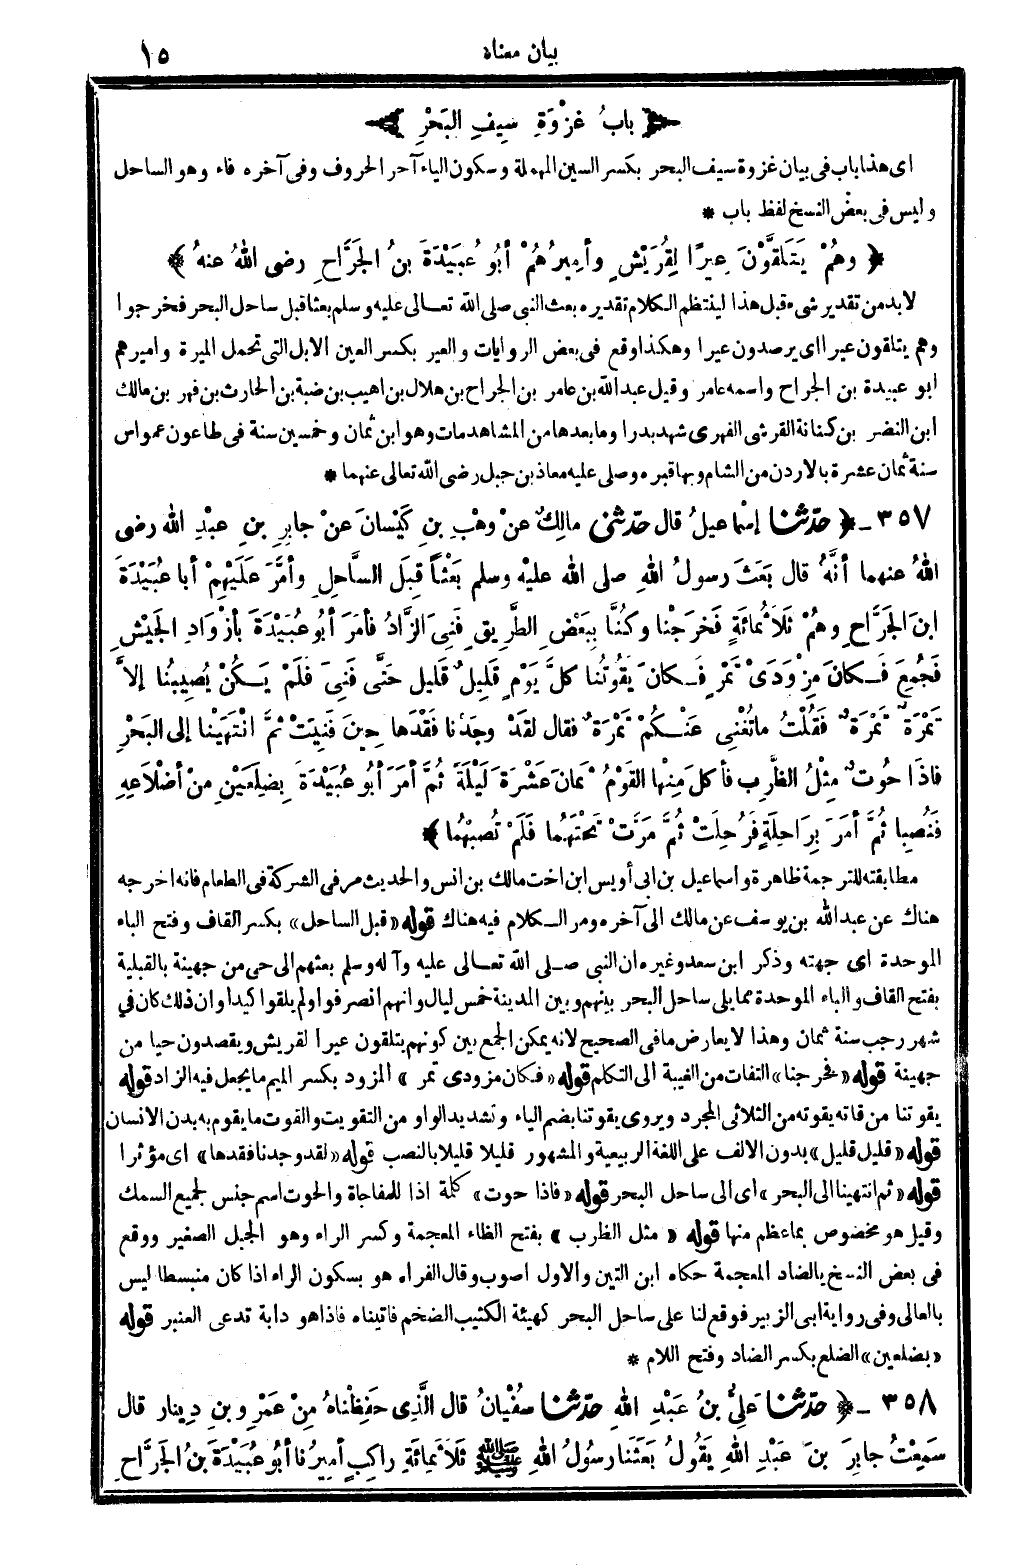 بيان معناه ١٥
﴿ بابُ غَزْوَةِ سِيفِ البَحْرِ ﴾
اى هذا باب فى بيان غزوة سيف البحر بكسر السين المهملة وسكون الياء آخر الحروف وفى آخره فاء وهو الساحل
وليس فى بعض النسخ لفظ باب *
﴿ وهُمْ يَتَلَقَّوْنَ عِيرًا لِقُرَيْشٍ وأمِيرُهُمْ أبُو عُبَيْدَةَ بنُ الجَرَّاحِ رضى اللهُ عنهُ ﴾
لابد من تقدير شىء قبل هذا لينتظم الكلام تقديره بعث النبى صلى الله تعالى عليه وسلم بعثا قبل ساحل البحر فخرجوا
وهم يتلقون عيرا اى يرصدون عيرا وهكذا وقع فى بعض الروايات والعير بكسر العين الابل التى تحمل الميرة واميرهم
ابو عبيدة بن الجراح واسمه عامر وقيل عبد الله بن عامر بن الجراح بن هلال بن اهيب بن ضبة بن الحارث بن فهر بن مالك
ابن النضر بن كنانة القرشى الفهرى شهد بدرا وما بعدها من المشاهد مات وهو ابن ثمان وخمسين سنة فى طاعون عمواس
سنة ثمان عشرة بالاردن من الشام وبها قبره وصلى عليه معاذ بن جبل رضى الله تعالى عنهما *
٣٥٧ ـ ﴿ حدّثنا إسْماعِيلُ قال حدّثنى مالِكٌ عنْ وهْبِ بنِ كَيْسانَ عنْ جابِرِ بنِ عبْدِ الله رضى
اللهُ عنهما أنَّهُ قال بَعَثَ رسولُ اللهِ صلى الله عليْه وسلم بَعْثاً قِبَلَ السَّاحلِ وأمَّرَ عَلَيْهِمْ أبا عُبَيْدَةَ
ابنَ الجَرَّاحِ وهُمْ ثَلاَثُمائَةٍ فَخَرَجْنا وكُنَّا بِبَعْضِ الطَّرِيقِ فَنِىَ الزَّادُ فأمَرَ أبُو عُبَيْدَةَ بأزْوَادِ الجَيْشِ
فَجُمِعَ فَكانَ مِزْوَدَىْ تَمْرٍ فَكانَ يَقُوتُنا كلَّ يَوْمٍ قَلِيلٌ قَلِيل حَتَّى فَنِىَ فَلَمْ يَكُنْ يُصِيبُنا إلاَّ
تَمْرَةٌ تَمْرَةٌ فَقُلْتُ ماتُغْنِى عَنْكُمْ تَمْرَةٌ فقال لقَدْ وجَدْنا فَقْدَها حِينَ فَنِيَتْ ثمَّ انْتَهَيْنا إلى البَحْرِ
فاذَا حُوتٌ مِثْلُ الظَّرِبِ فأكلَ مِنْها القَوْمُ ثَمانَ عَشْرَةَ لَيْلَةً ثُمَّ أمَرَ أبُو عُبَيْدَةَ بِضِلَعَيْنِ مِنْ أضْلاَعِهِ
فَنُصِبا ثُمَّ أمَرَ بِرَاحِلَةٍ فَرُحِلَتْ ثُمَّ مَرَّتْ تَحْتَهُما فَلَمْ تُصِبْهُما ﴾
مطابقته للترجمة ظاهرة واسماعيل بن ابى أويس ابن اخت مالك بن انس والحديث مر فى الشركة فى الطعام فانه اخرجه
هناك عن عبد الله بن يوسف عن مالك الى آخره ومر الكلام فيه هناك قوله «قبل الساحل» بكسر القاف وفتح الباء
الموحدة اى جهته وذكر ابن سعد وغيره ان النبى صلى الله تعالى عليه وآله وسلم بعثهم الى حى من جهينة بالقبلية
بفتح القاف والباء الموحدة مما يلى ساحل البحر بينهم وبين المدينة خمس ليال وانهم انصرفوا ولم يلقوا كيدا وان ذلك كان في
شهر رجب سنة ثمان وهذا لا يعارض ما فى الصحيح لانه يمكن الجمع بين كونهم يتلقون عيرا لقريش ويقصدون حيا من
جهينة قوله «فخرجنا» التفات من الغيبة الى التكلم قوله «فكان مزودى تمر» المزود بكسر الميم ما يجعل فيه الزاد قوله
يقوتنا من قاته يقوته من الثلاثى المجرد ويروى يقوتنا بضم الياء وتشديد الواو من التقويت والقوت ما يقوم به بدن الانسان
قوله «قليل قليل» بدون الالف على اللغة الربيعية والمشهور قليلا قليلا بالنصب قوله «لقد وجدنا فقدها» اى مؤثرا
قوله «ثم انتهينا الى البحر» اى الى ساحل البحر قوله «فاذا حوت» كلمة اذا للمفاجاة والحوت اسم جنس لجميع السمك
وقيل هو مخصوص بما عظم منها قوله « مثل الظرب » بفتح الظاء المعجمة وكسر الراء وهو الجبل الصغير ووقع
فى بعض النسخ بالضاد المعجمة حكاه ابن التين والاول اصوب وقال الفراء هو بسكون الراء اذا كان منبسطا ليس
بالعالى وفى رواية ابى الزبير فوقع لنا على ساحل البحر كهيئة الكثيب الضخم فاتيناه فاذا هو دابة تدعى العنبر قوله
«بضلعين» الضلع بكسر الضاد وفتح اللام *
٣٥٨ ـ ﴿ حدّثنا عَلِىُّ بنُ عَبْدِ اللهِ حدّثنا سفْيانُ قال الَّذِى حَفِظْناهُ مِنْ عَمْرِو بنِ دِينار قال
سَمِعْتُ جابِرَ بنَ عَبْدِ اللهِ يَقُولُ بَعَثَنا رسُولُ اللهِ ﷺ ثَلاَثَمِائَةِ راكِبٍ أمِيرُنا أبُو عُبَيْدَةَ بنُ الجَرَّاحِ